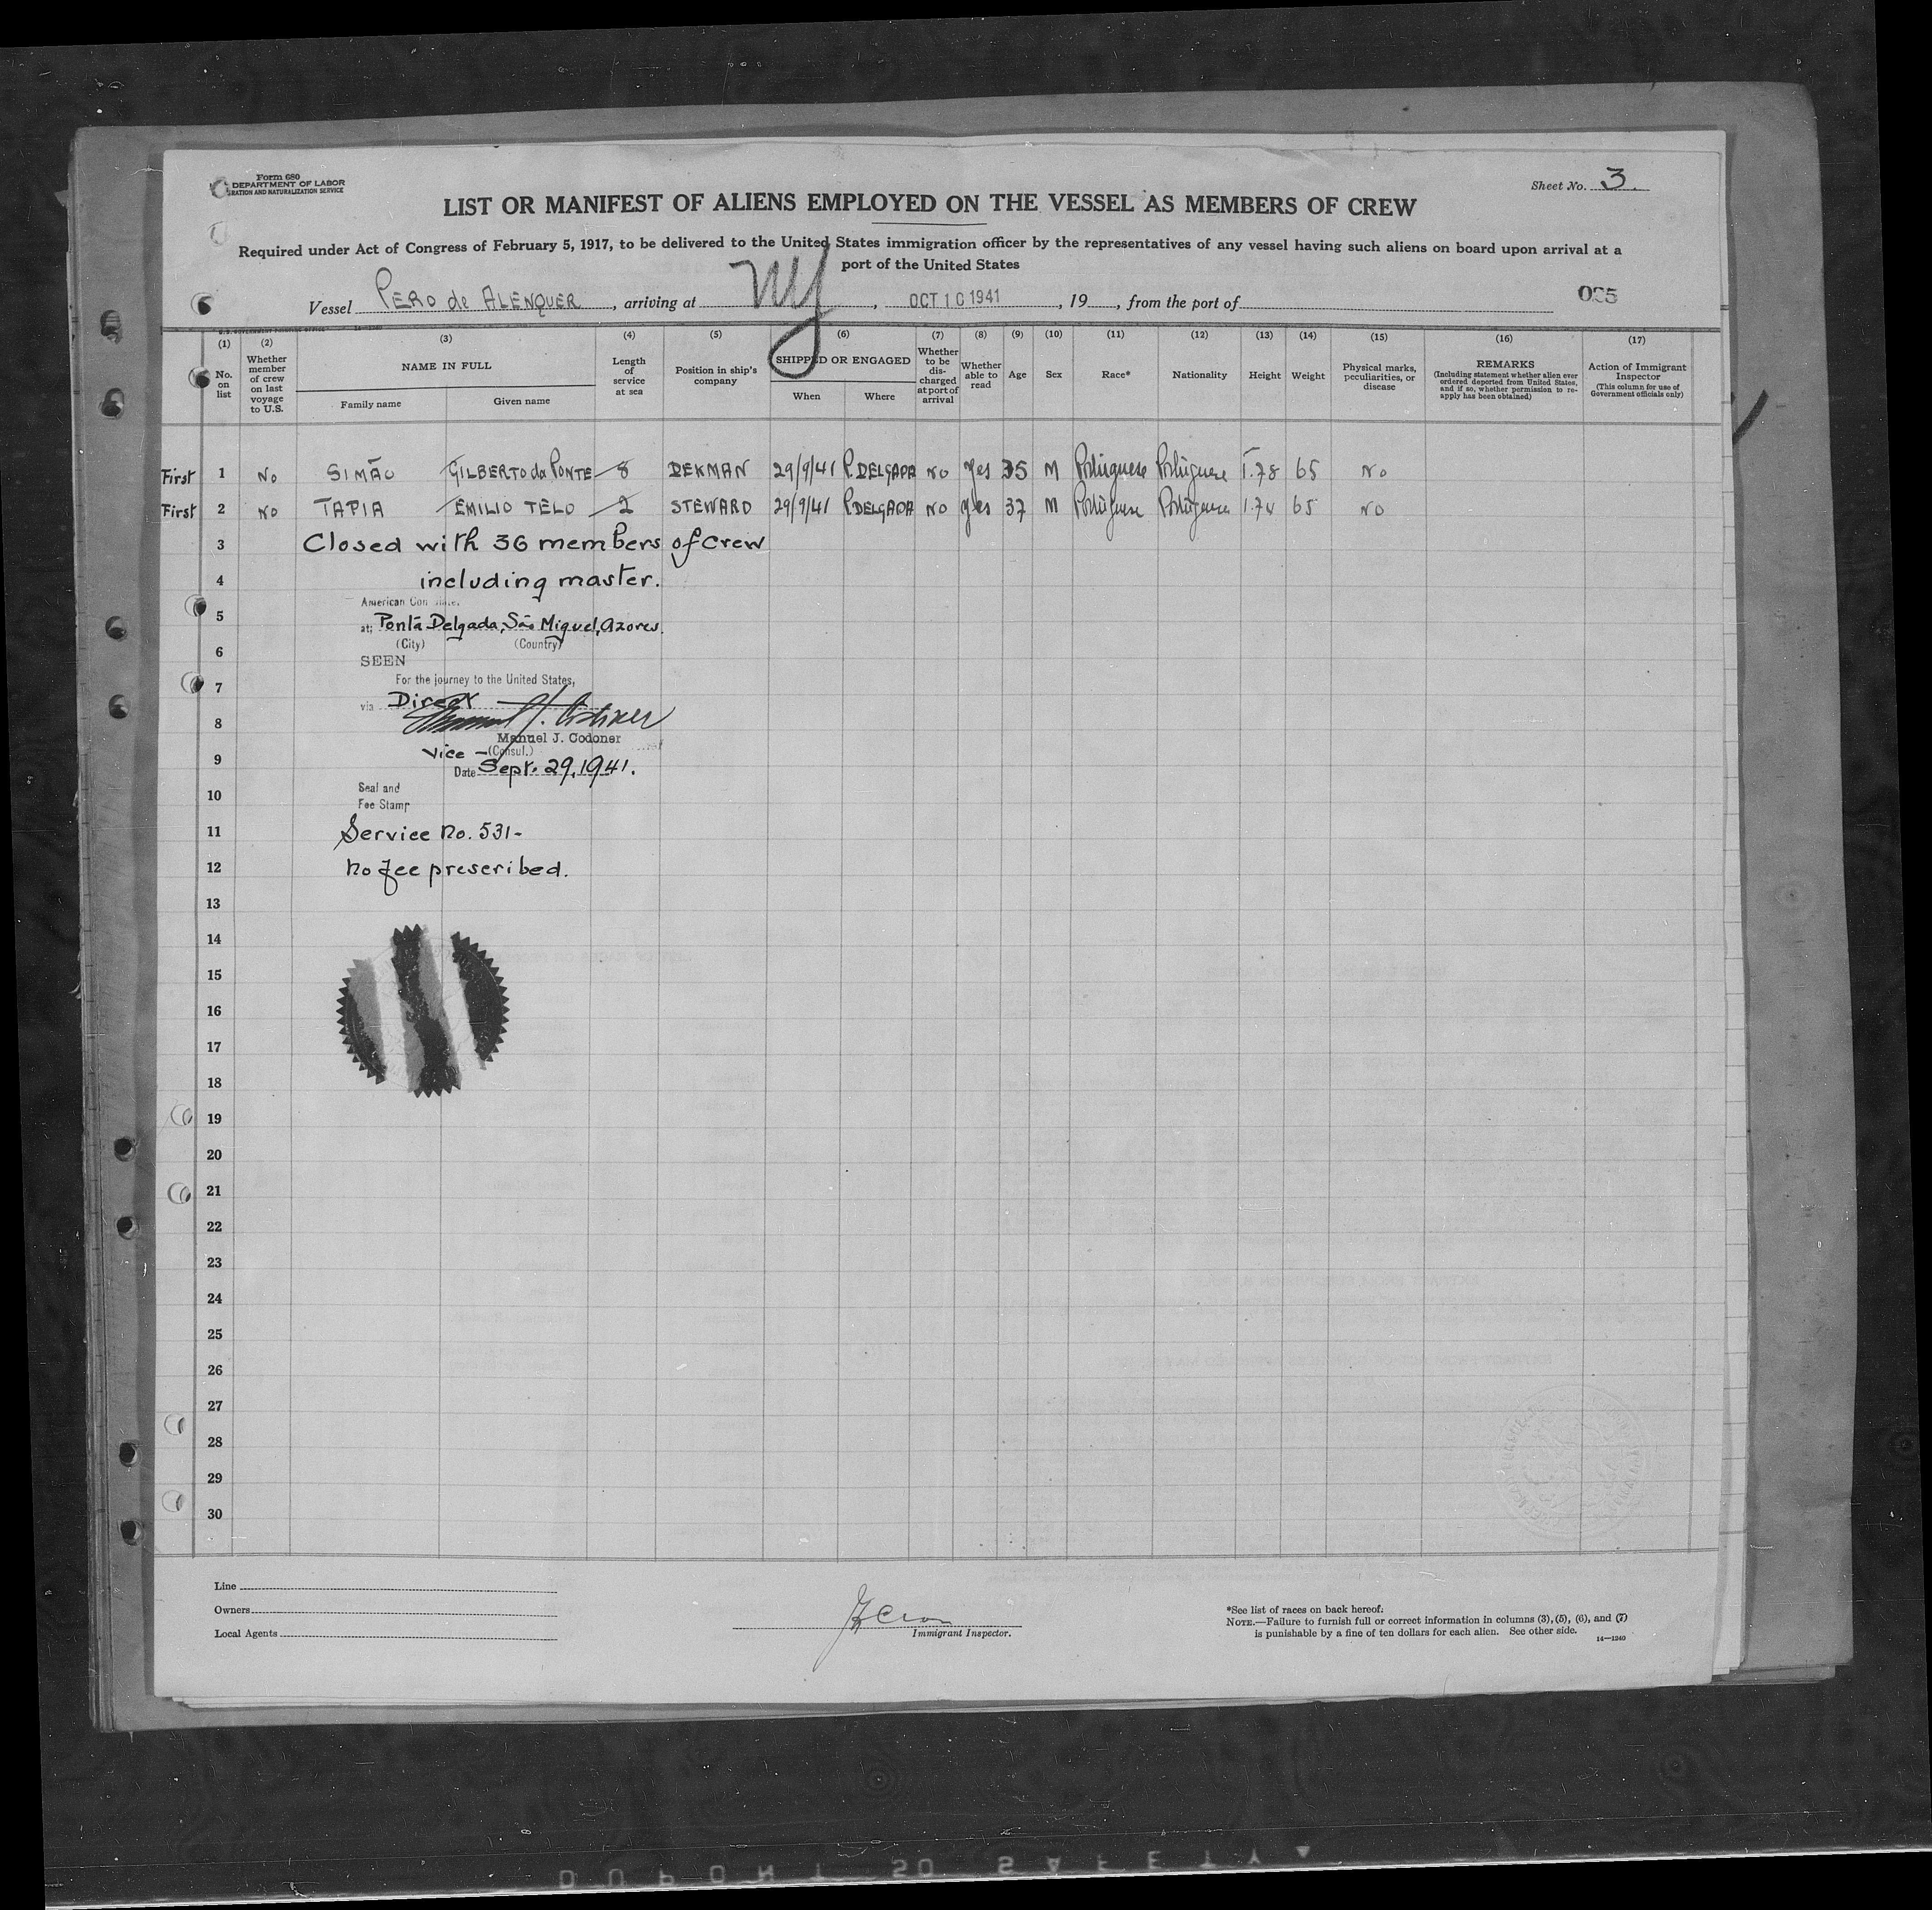 Form 680
DEPARTMENT OF LABOR
GRATION AND NATURALIZATION SERVICE
Sheet No. 3.
LIST OR MANIFEST OF ALIENS EMPLOYED ON THE VESSEL AS MEMBERS OF CREW
Required under Act of Congress of February 5, 1917, to be delivered to the United States immigration officer by the representatives of any vessel having such aliens on board upon arrival at a
port of the United States
Vessel PERO de ALENQUER, arriving at NY, OCT 10 1941, 19, from the port of
(1) (2) (3) (4) (5) (6) (7) (8) (9) (10) (11) (12) (13) (14) (15) (16) (17)
No. on list
Whether member of crew on last voyage to U.S.
NAME IN FULL
Family name
Given name
Length of service at sea
Position in ship's company
SHIPPED OR ENGAGED
When
Where
Whether to be discharged at port of arrival
Whether able to read
Age
Sex
Race*
Nationality
Height
Weight
Physical marks, peculiarities, or disease
REMARKS
(Including statement whether alien ever ordered deported from United States, and if so, whether permission to reapply has been obtained)
Action of Immigrant Inspector
(This column for use of Government officials only)
First 1 No SIMÃO GILBERTO da PONTE 8 DEKMAN 29/9/41 P. DELGADA NO Yes 35 M Portuguese Portuguese 1.78 65 No
First 2 NO TAPIA EMILIO TELO 2 STEWARD 29/9/41 P. DELGADA NO Yes 37 M Portuguese Portuguese 1.74 65 NO
3 Closed with 36 members of crew
4 including master.
American Con
5 at Ponta Delgada, São Miguel, Azores.
(City) (Country)
6
SEEN
For the journey to the United States,
7
via Direct
8
Manuel J. Codoner
Vice - (Consul.)
9
Date Sept. 29, 1941.
Seal and
10
Fee Stamp
11 Service No. 531-
12 No fee prescribed.
13
14
15
16
17
18
19
20
21
22
23
24
25
26
27
28
29
30
Line
Owners
Local Agents
Immigrant Inspector.
*See list of races on back hereof.
NOTE.—Failure to furnish full or correct information in columns (3), (5), (6), and (7)
is punishable by a fine of ten dollars for each alien. See other side.
14—1240
DUPONT SO SAFETY